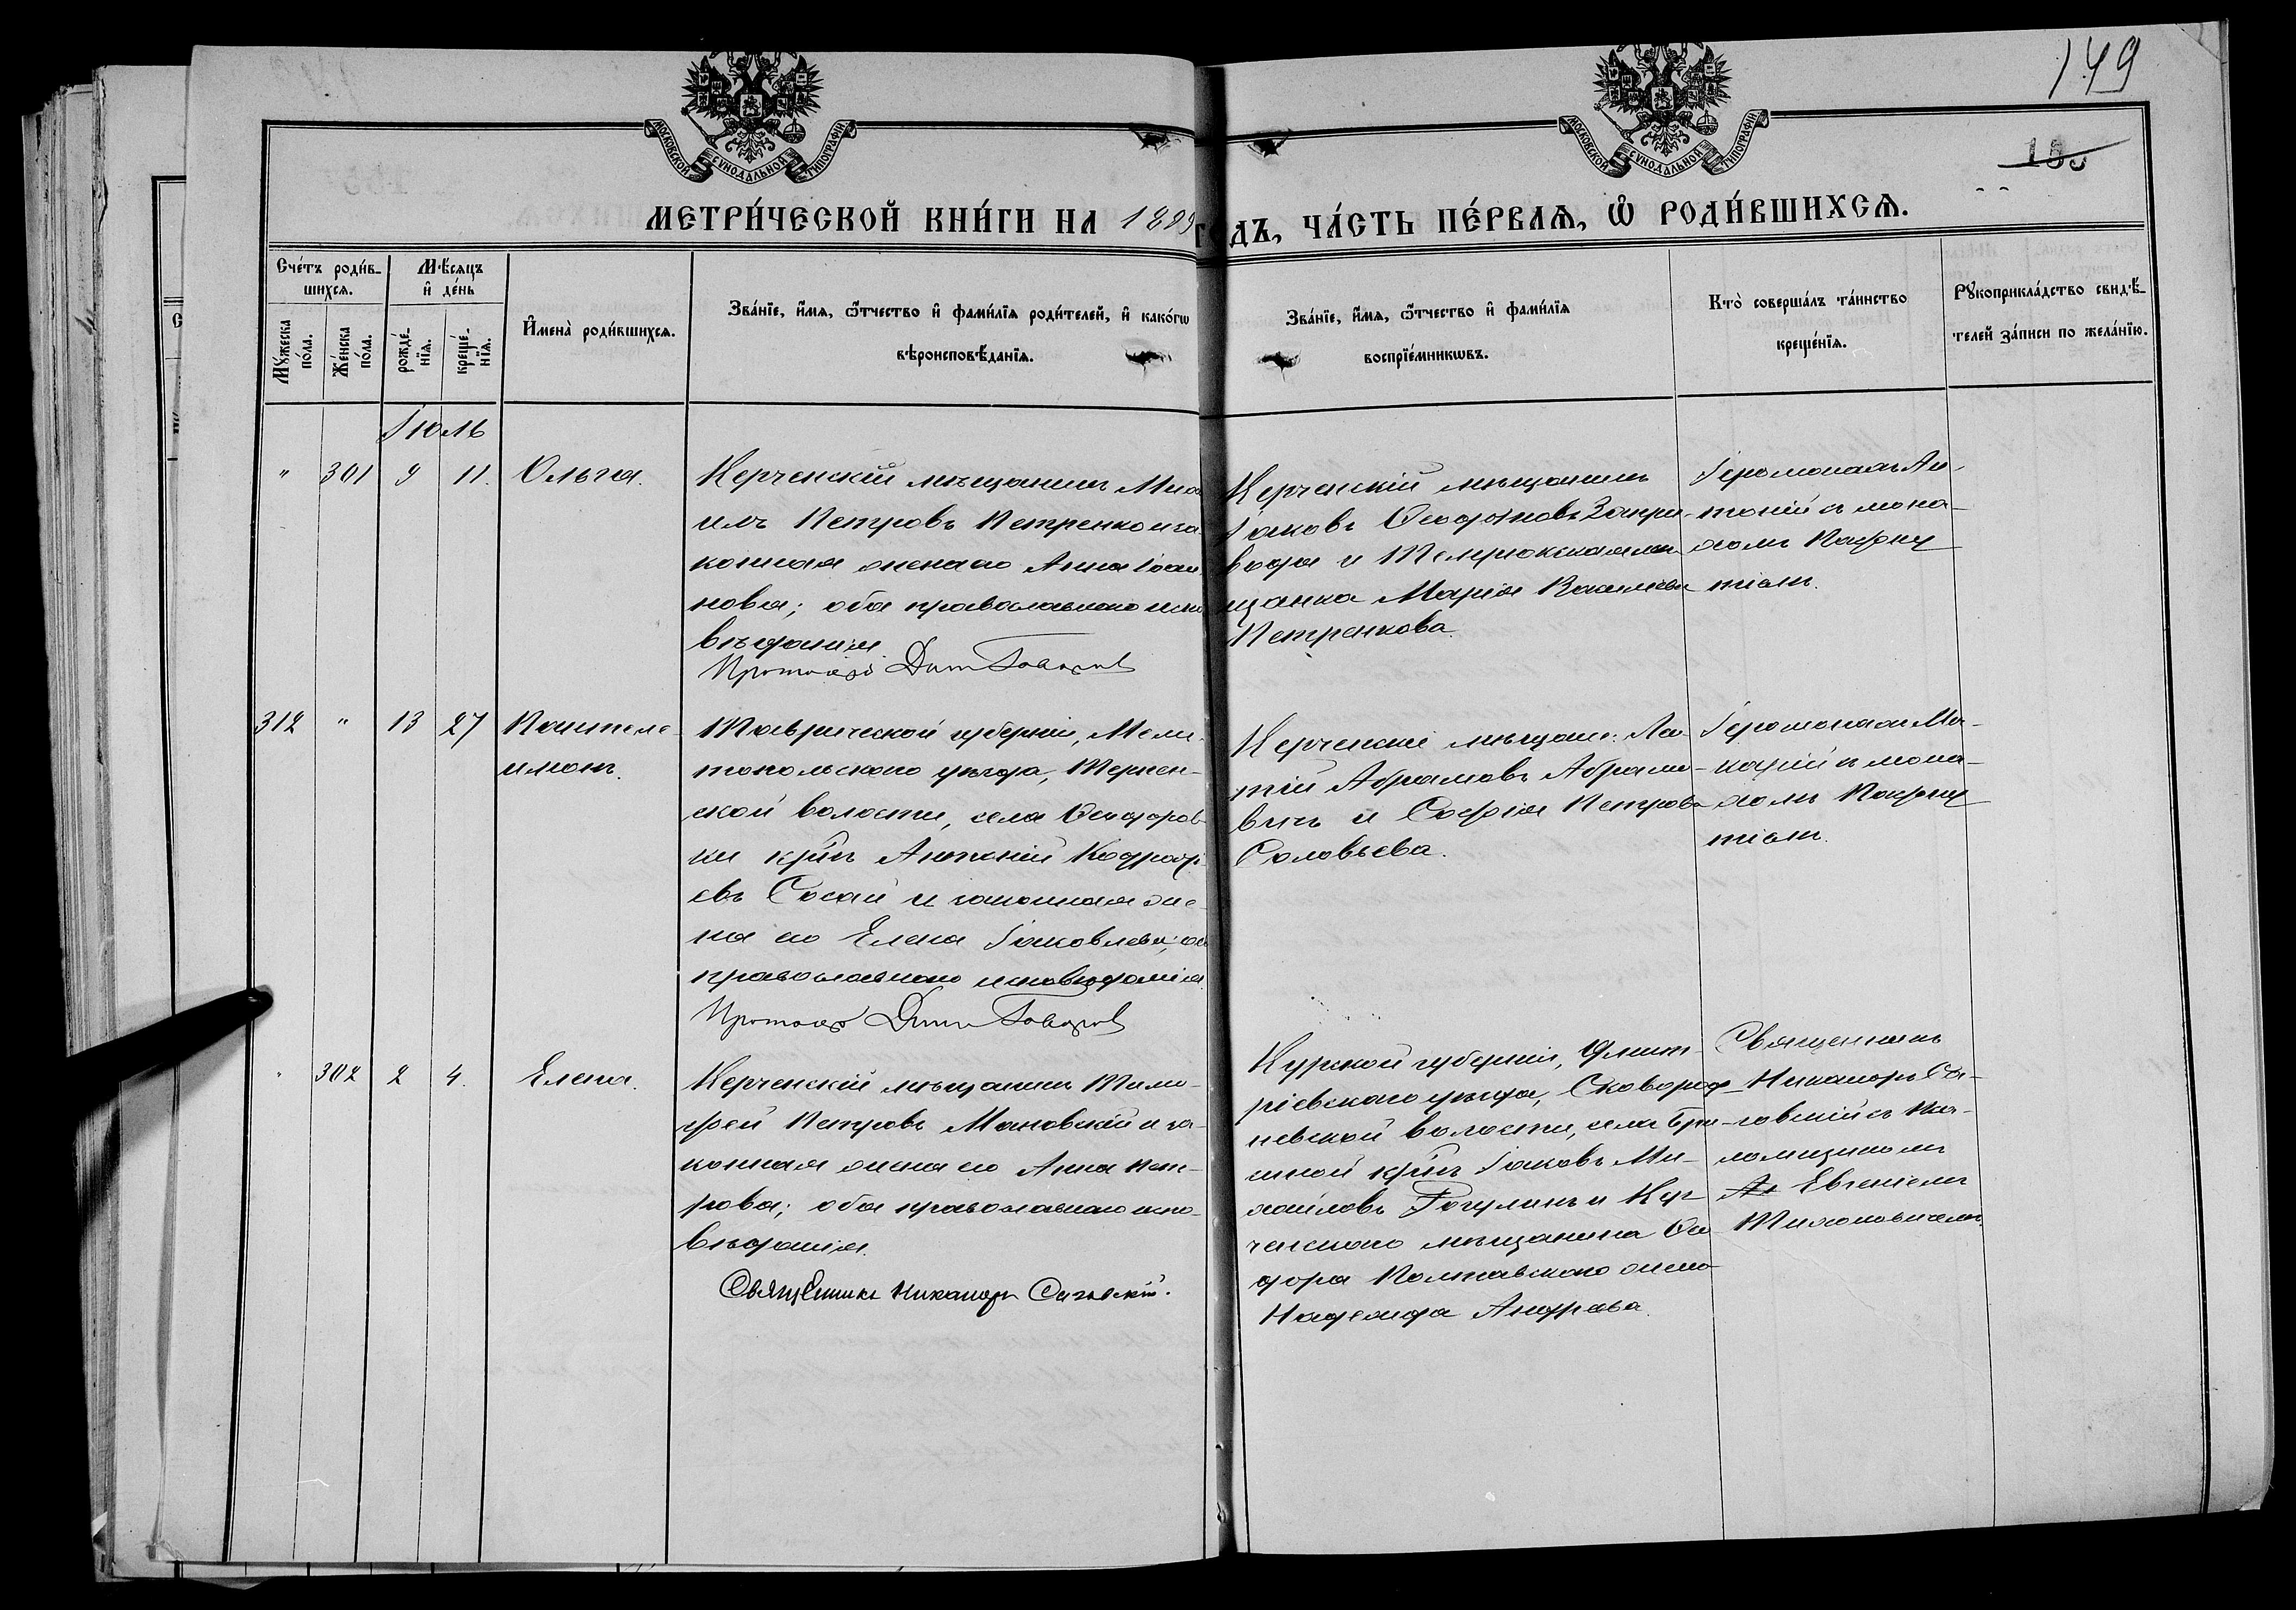 149
МОСКОВСКОЙ СѴНОДАЛЬНОЙ ТИПОГРАФІИ
МОСКОВСКОЙ СѴНОДАЛЬНОЙ ТИПОГРАФІИ
МЕТРИ́ЧЕСКОЙ КНИ́ГИ НА 1899 ГОДЪ, ЧА́СТЬ ПЕ́РВАЯ, Ѡ҆ РОДИ́ВШИХСЯ.
Сче́тъ роди́в-
шихся.
Мꙋ́жеска по́ла.
Же́нска по́ла.
Мѣ́сяцъ
и҆ де́нь
рожде́-
нїя.
креще́-
нїя.
И҆мена̀ роди́вшихся.
Зва́нїе, и҆́мя, ѻ҆́тчество и҆ фами́лїя роди́телей, и҆ како́гѡ
вѣроисповѣ́данїя.
Зва́нїе, и҆́мя, ѻ҆́тчество и҆ фами́лїя
воспрїе́мникѡвъ.
Кто̀ соверша́лъ та́инство
креще́нїя.
Рꙋкоприкла́дство свидѣ́-
телей за́писи по жела́нїю.
Іюль
" 301 9 11. Ольга.
Керченскій мѣщанинъ Миха
илъ Петровъ Петренко и за
конная жена его Анна Іоан
нова; оба православнаго испо
вѣданія
Протоіер
Керченскій мѣщанинъ
Іаковъ
вода и Темрюкская мѣ
щанка Марія Васильева
Петренкова.
Іеромонахъ Ан
тоній съ мона-
хомъ Пафну
тіемъ.
312 " 13 27 Пантеле-
имонъ.
Таврической губерніи, Мели-
топольскаго уѣзда,
ской волости, села Ѳеодоров-
ки крнъ Антоній Кодрать
евъ Сосай и законная же-
на его Елена Іаковлева; оба
православнаго исповѣданія.
Протоіер
Керченскіе мѣщане:
тій Абрамовъ Абрамо-
вичъ и Софія Петрова
Соловьева.
Іеромонахъ Ма-
карій съ мона-
хомъ Пафну
тіемъ.
" 302 2 4. Елена.
Керченскій мѣщанинъ Тимо-
фей Петровъ Мановскій и за-
конная жена его Анна Пет-
рова; оба православнаго испо-
вѣданія.
Священникъ Никаноръ Саговскій.
Курской губерніи, Дмит-
ріевскаго уѣзда, Сковород-
невской волости, села
крнъ Іаковъ Ми-
хайловъ Рогулинъ и Кер-
ченскаго мѣщанина Ѳео
дора Полтавскаго жена
Надежда Андреева.
Священникъ
Никаноръ Са-
говскій съ пса-
ломщикомъ
Евгеніемъ
Тихоновичемъ